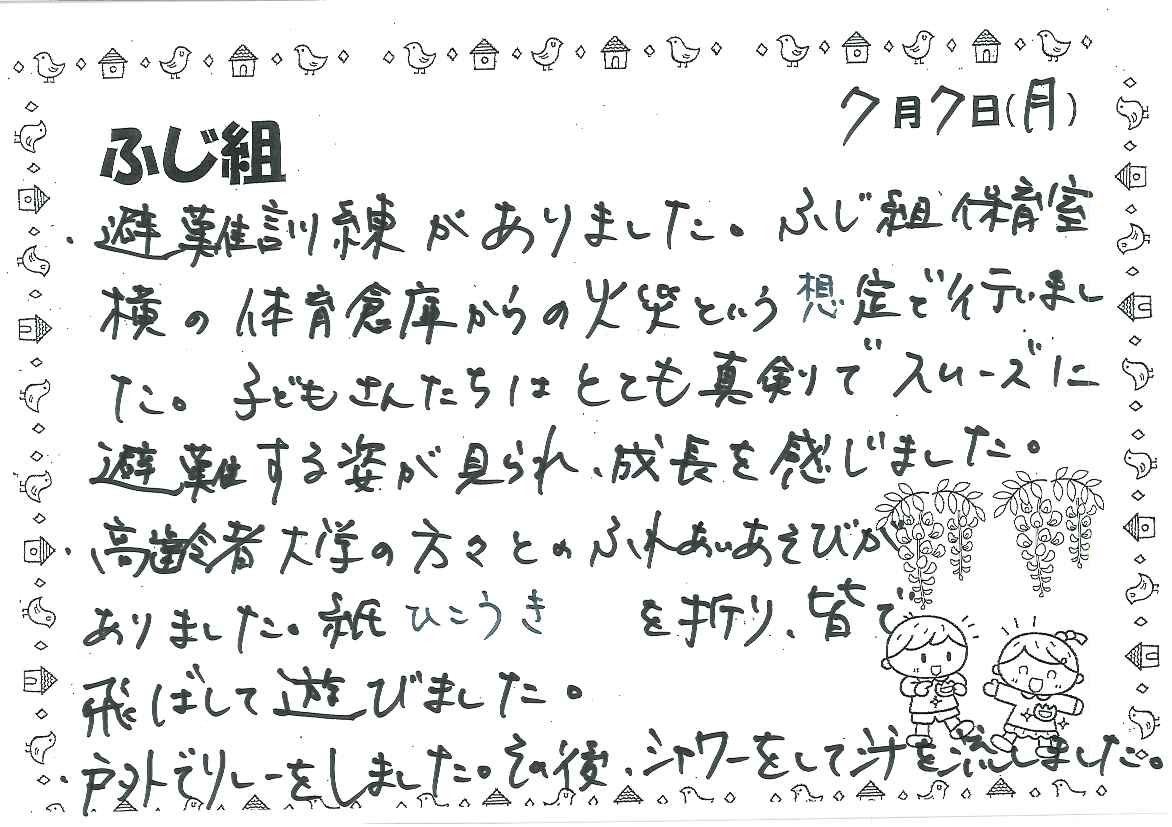 7月7日(月)
ふじ組
・避難訓練がありました。ふじ組保育室
横の体育倉庫からの火災という想定で行いまし
た。子どもさんたちはとても真剣でスムーズに
避難する姿が見られ、成長を感じました。
・高齢者大学の方々とのふれあいあそびが
ありました。紙ひこうき を折り、皆で
飛ばして遊びました。
・戸外でリレーをしました。その後、シャワーをして汗を流しました。